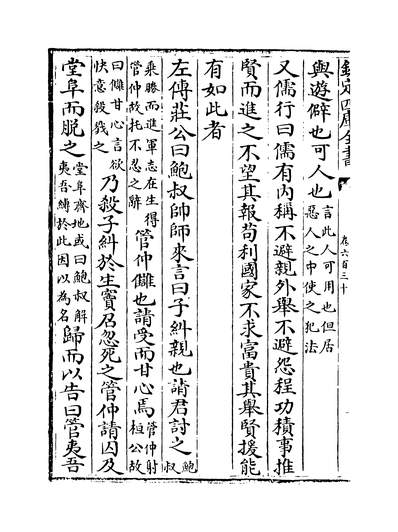 欽定四庫全書
卷六百三十
與遊僻也可人也言此人可用也但居惡人之中使之犯法
又儒行曰儒有内稱不避親外舉不避怨程功積事推
賢而進之不望其報苟利國家不求富貴其舉賢援能
有如此者
左傳莊公曰鮑叔帥師來言曰子糾親也請君討之鮑叔
乘勝而進軍志在生得管仲故托不忍之辭管仲讎也請受而甘心焉管仲射桓公故
曰讎甘心言欲快意殺戮之乃殺子糾於生竇召忽死之管仲請囚及
堂阜而脫之堂阜齊地或曰鮑叔解夷吾縛於此因以為名歸而以告曰管夷吾